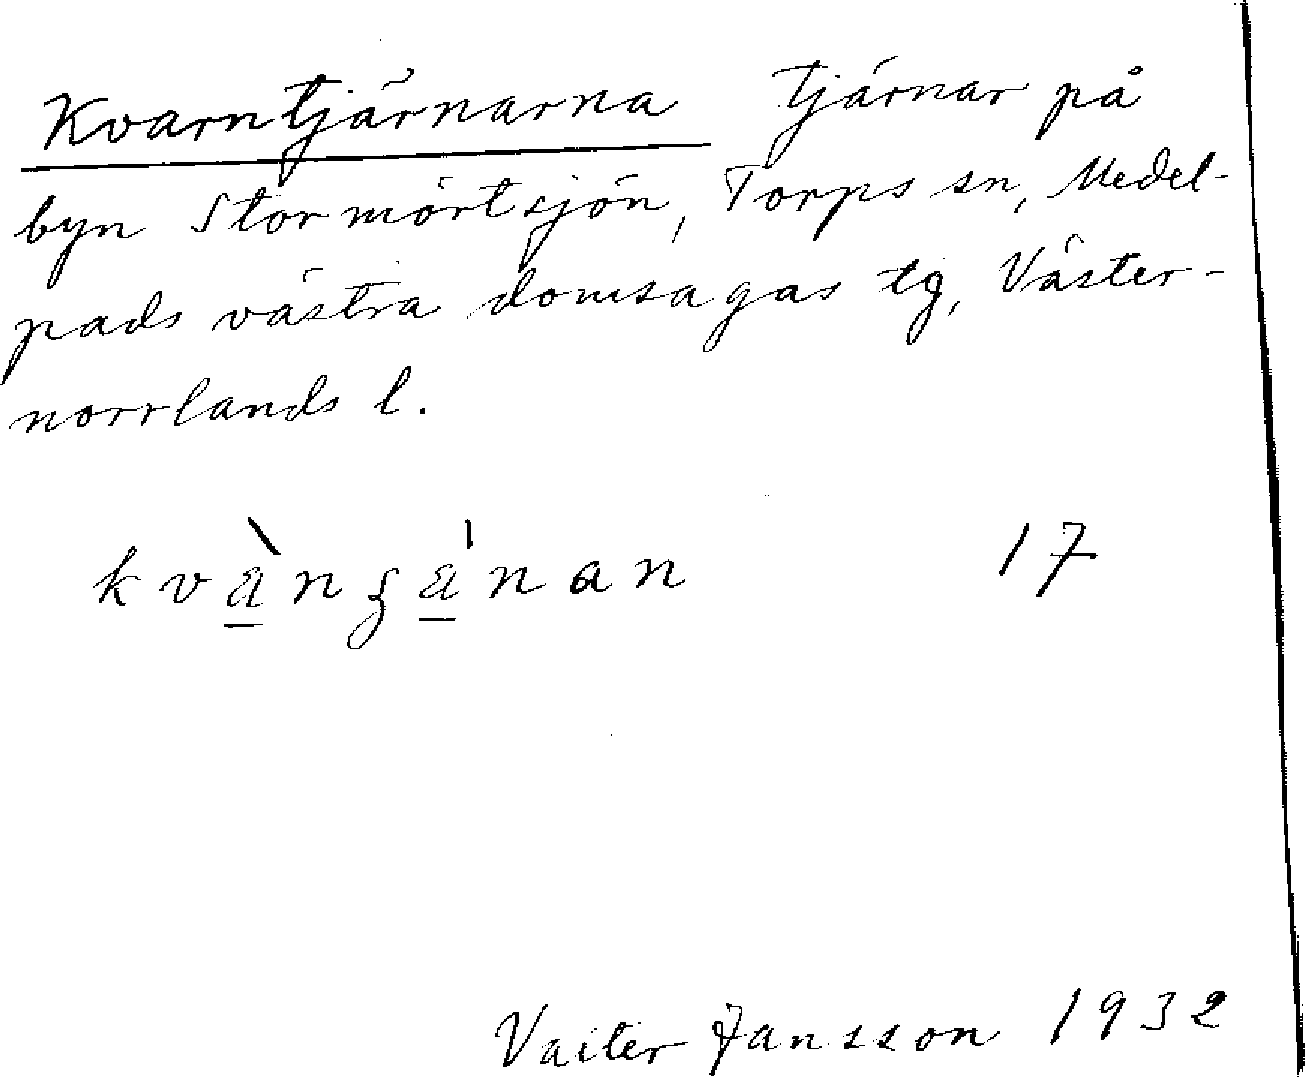 Kvarntjärnarna tjärnar på
byn Stormörtsjön, Torps sn, Medel-
pads västra domsagas tg, Väster-
norrlands l.
17
Valter Jansson 1932